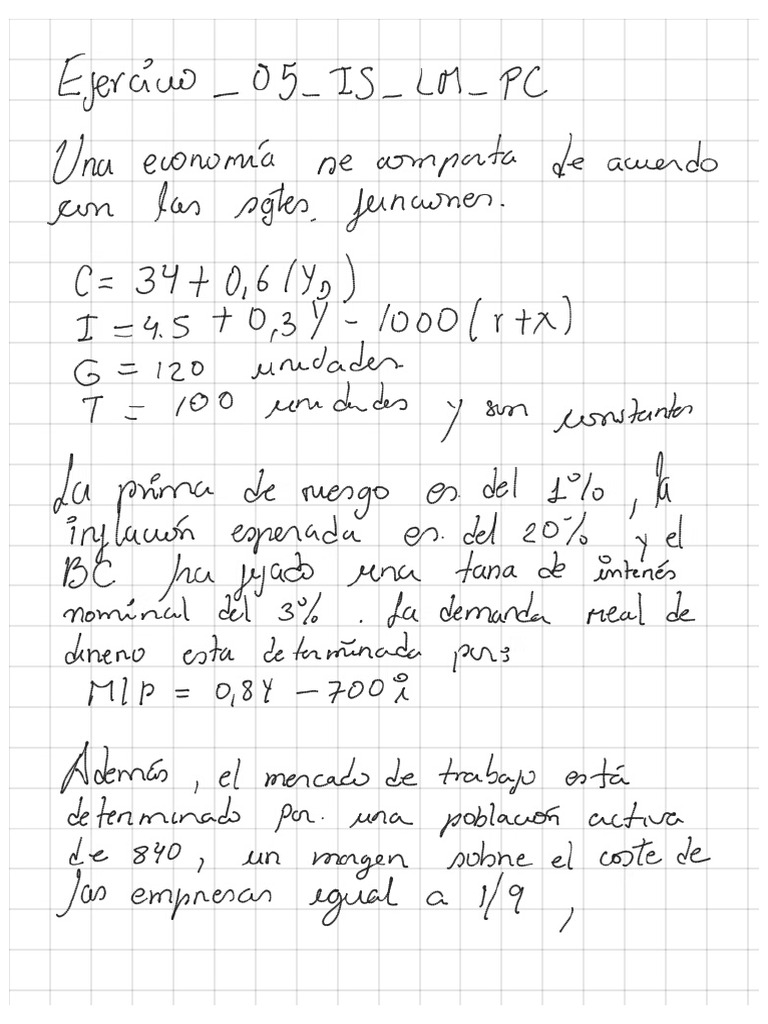 Ejercicio_05_IS_LM_PC
Una economía se comporta de acuerdo
con las sgtes. funciones.
C = 34 + 0,6 (Y_D)
I = 4.5 + 0,3Y - 1000 (r+x)
G = 120 unidades
T = 100 unidades y son constantes
La prima de riesgo es del 1%, la
inflación esperada es del 20% y el
BC ha fijado una tasa de interés
nominal del 3%. La demanda real de
dinero esta determinada por:
M/P = 0,8Y - 700i
Además, el mercado de trabajo está
determinado por una población activa
de 840, un margen sobre el coste de
las empresas igual a 1/9,